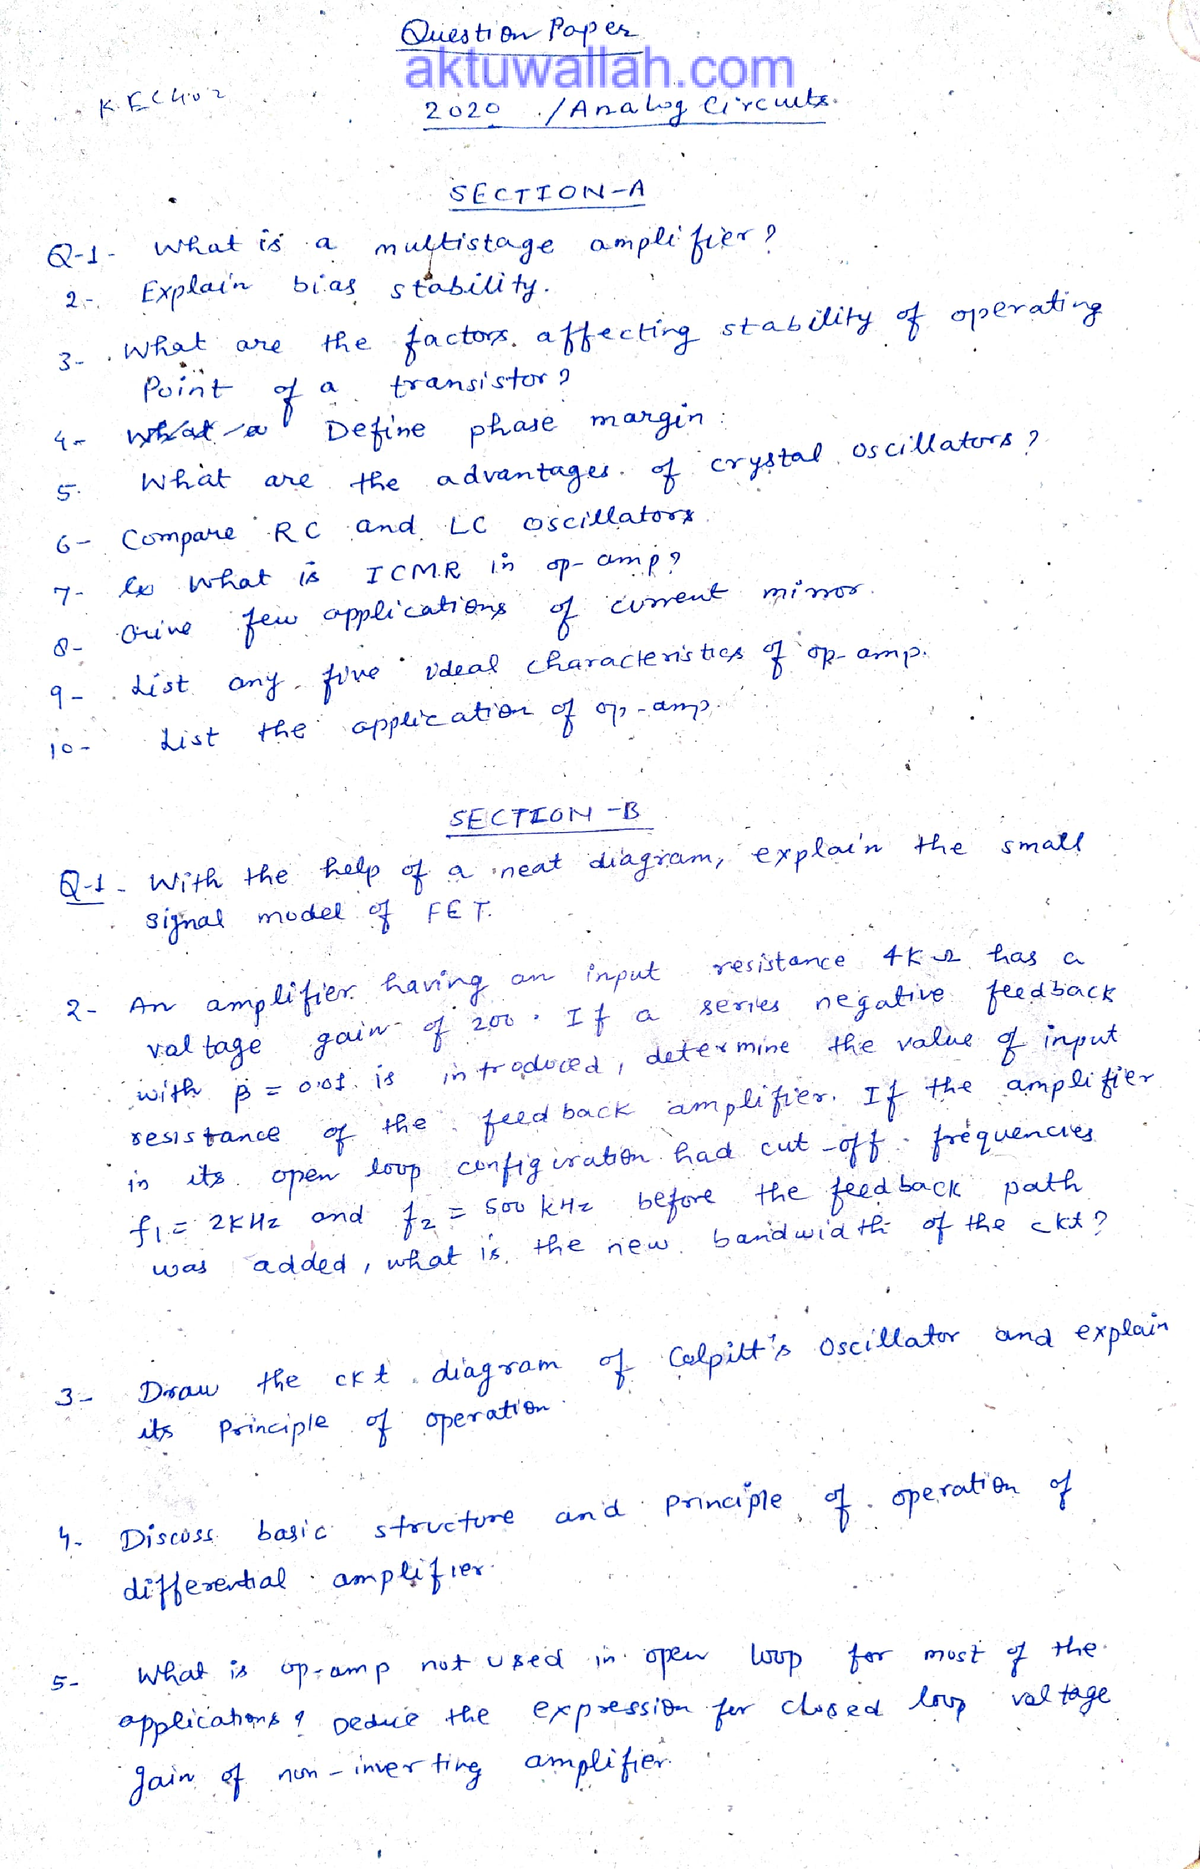 Question Paper
aktuwallah.com
KEC402
2020 / Analog Circuits.
SECTION-A
Q-1- What is a multistage amplifier?
2- Explain bias stability.
3- What are the factors affecting stability of operating
Point of a transistor?
4- What a Define phase margin
5. What are the advantages of crystal oscillators?
6- Compare RC and LC oscillators
7- Ex What is ICMR in op-amp?
8- Give few applications of current mirror.
9- List any five ideal characteristics of op-amp.
10- List the application of op-amp.
SECTION-B
Q-1- With the help of a neat diagram, explain the small
signal model of FET.
2- An amplifier having an input resistance 4KΩ has a
voltage gain of 200. If a series negative feedback
with β = 0.01 is introduced, determine the value of input
resistance of the feedback amplifier. If the amplifier
in its open loop configuration had cut-off frequencies
f1 = 2KHz and f2 = 500 kHz before the feedback path
was added, what is the new bandwidth of the ckt?
3- Draw the ckt diagram of Colpitt's Oscillator and explain
its Principle of operation
4. Discuss basic structure and principle of operation of
differential amplifier.
5- What is op-amp not used in open loop for most of the
applications? Deduce the expression for closed loop voltage
gain of non-inverting amplifier.